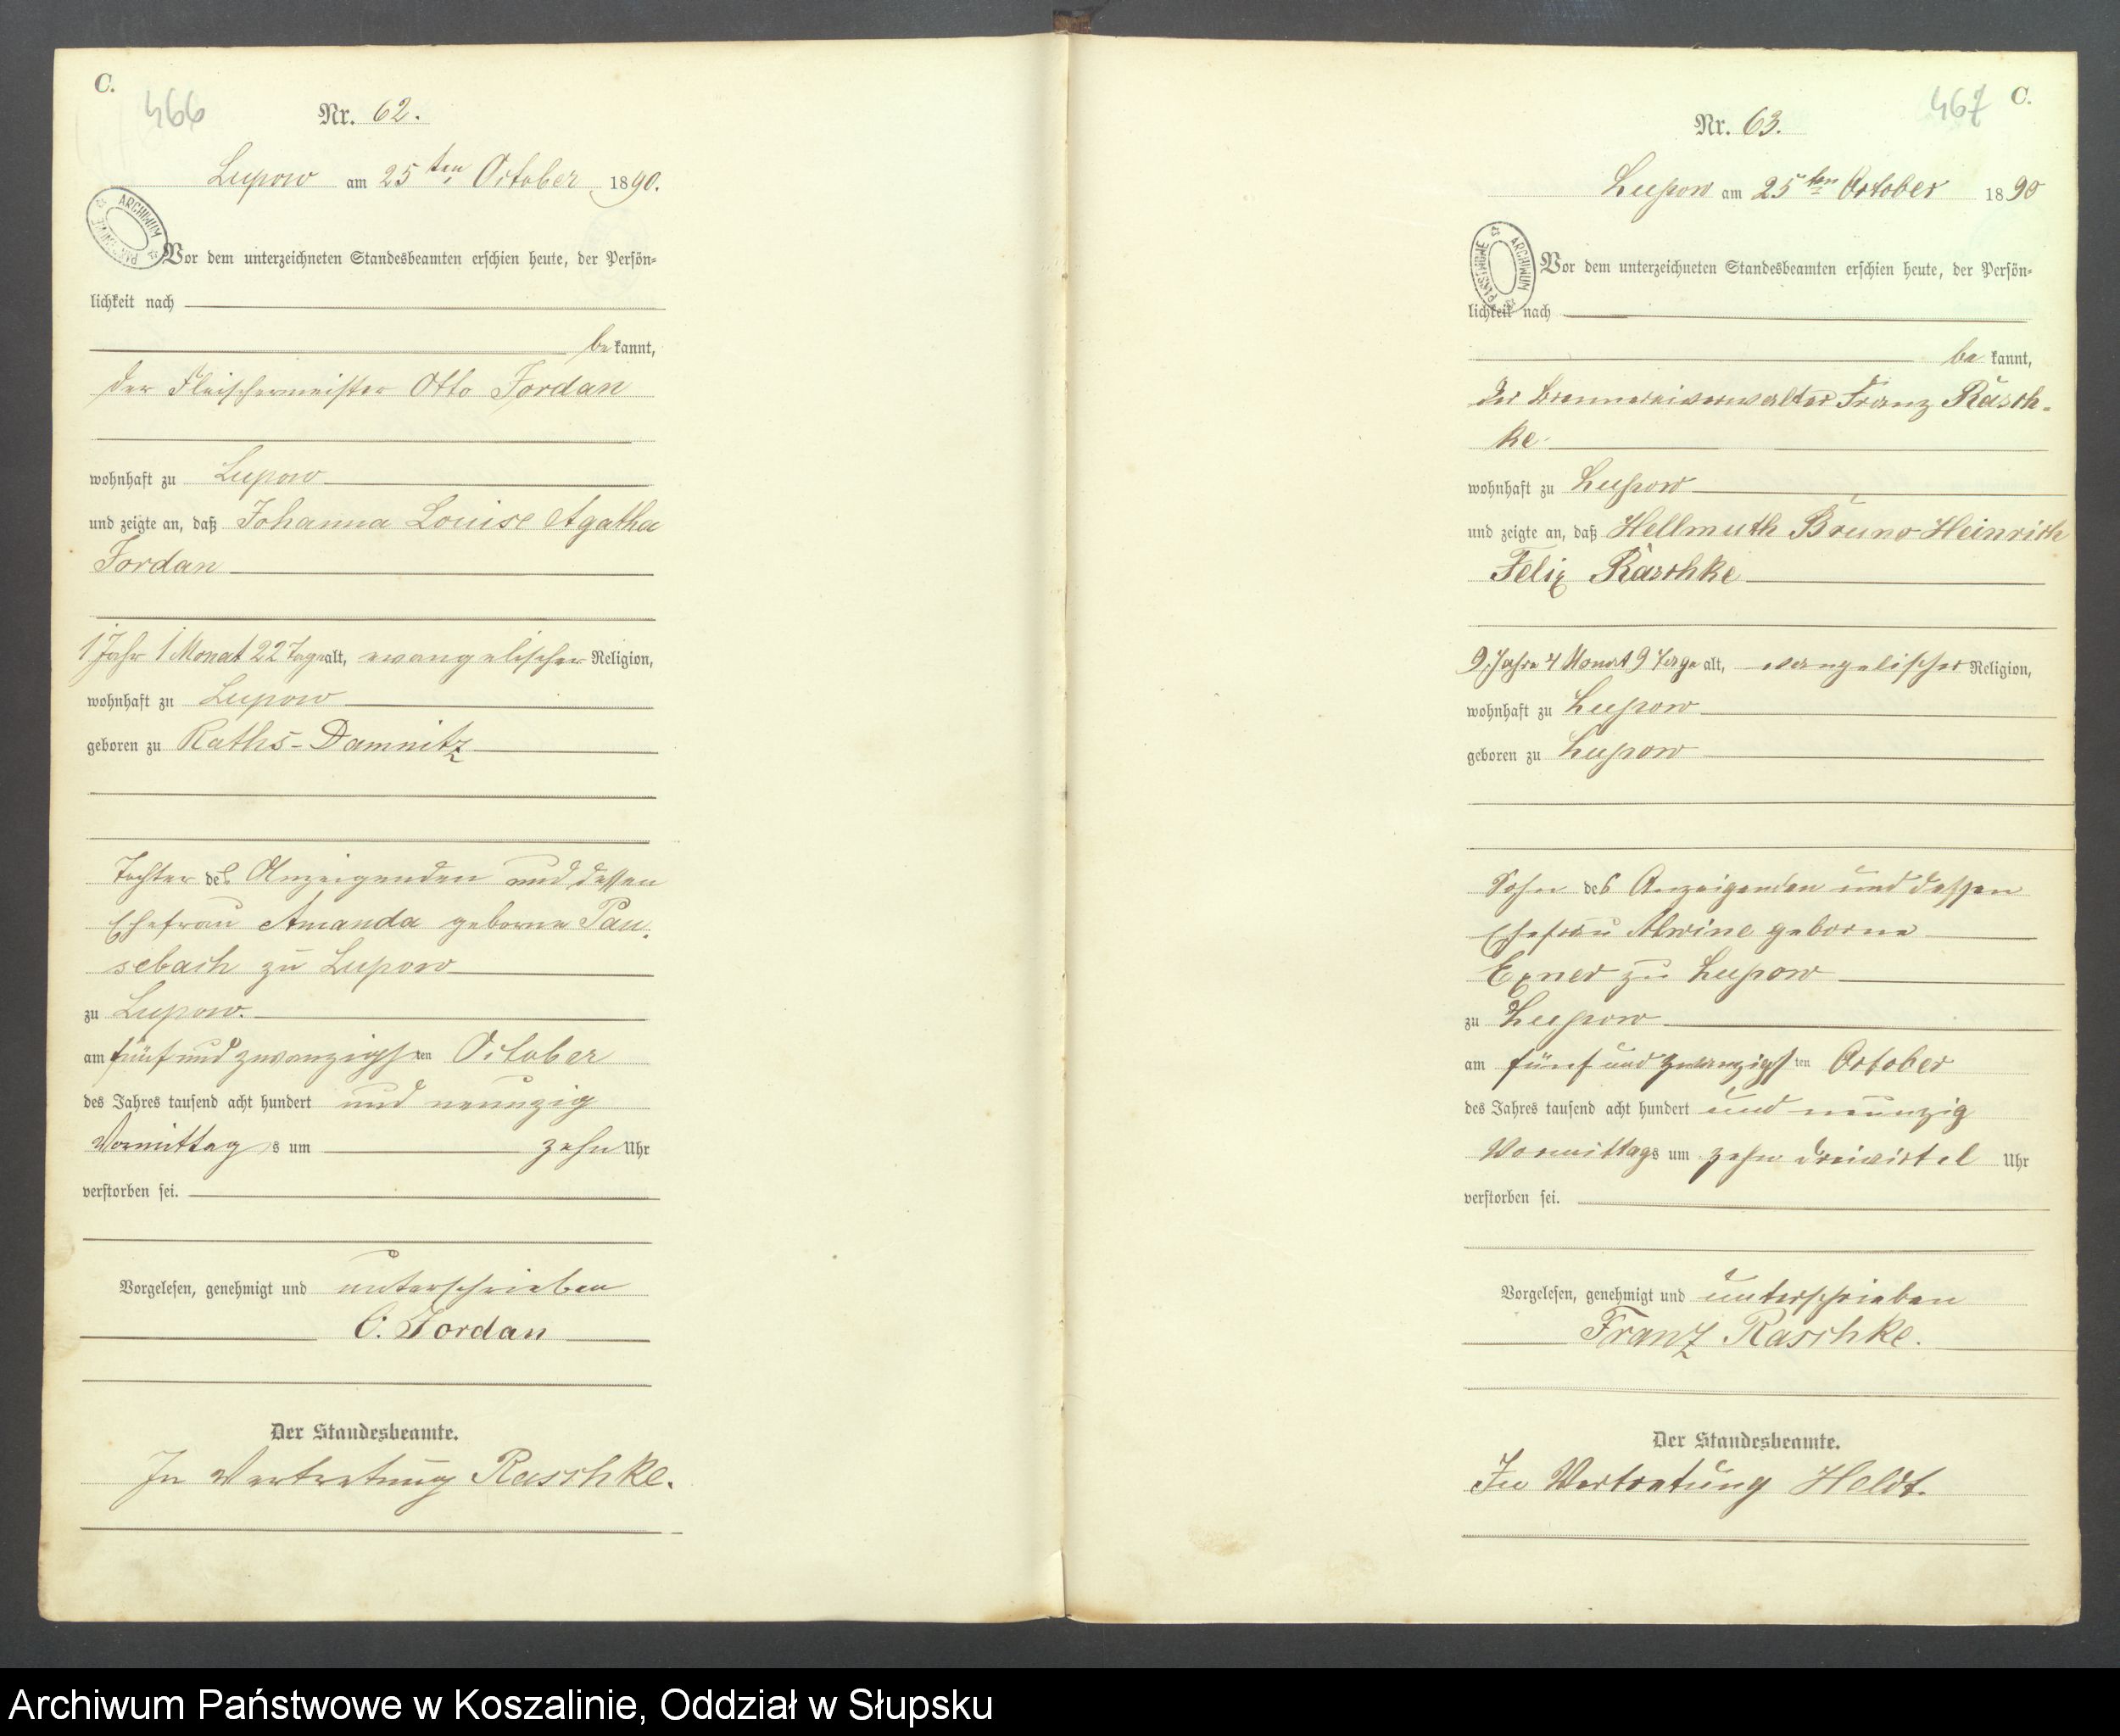 C.
466
Nr. 62.
Lupow am 25ten October 1890.
ARCHIWUM PAŃSTWOWE
Vor dem unterzeichneten Standesbeamten erschien heute, der Persön-
lichkeit nach
bekannt,
der Fleischermeister Otto Jordan
wohnhaft zu Lupow
und zeigte an, daß Johanna Louise Agatha
Jordan
1 Jahr 1 Monat 22 Tage alt, evangelischer Religion,
wohnhaft zu Lupow
geboren zu Raths-Damnitz
Tochter des Anzeigenden und dessen
Ehefrau Amanda geborne Pau-
sebach zu Lupow
zu Lupow.
am fünf und zwanzigsten October
des Jahres tausend acht hundert und neunzig
Vormittags um zehn Uhr
verstorben sei.
Vorgelesen, genehmigt und unterschrieben
O. Jordan
Der Standesbeamte.
In Vertretung Raschke.
467
C.
Nr. 63.
Lupow am 25ten October 1890
ARCHIWUM PAŃSTWOWE
Vor dem unterzeichneten Standesbeamten erschien heute, der Persön-
lichkeit nach
bekannt,
der Brennereiverwalter Franz Rasch-
ke
wohnhaft zu Lupow
und zeigte an, daß Hellmuth Bruno Heinrich
Felix Raschke
9 Jahre 4 Monat 9 Tage alt, evangelischer Religion,
wohnhaft zu Lupow
geboren zu Lupow
Sohn des Anzeigenden und dessen
Ehefrau Alwine geborne
Exner zu Lupow
zu Lupow
am fünf und zwanzigsten October
des Jahres tausend acht hundert und neunzig
Vormittags um zehn dreivirtel Uhr
verstorben sei.
Vorgelesen, genehmigt und unterschrieben
Franz Raschke.
Der Standesbeamte.
In Vertretung Heldt.
Archiwum Państwowe w Koszalinie, Oddział w Słupsku